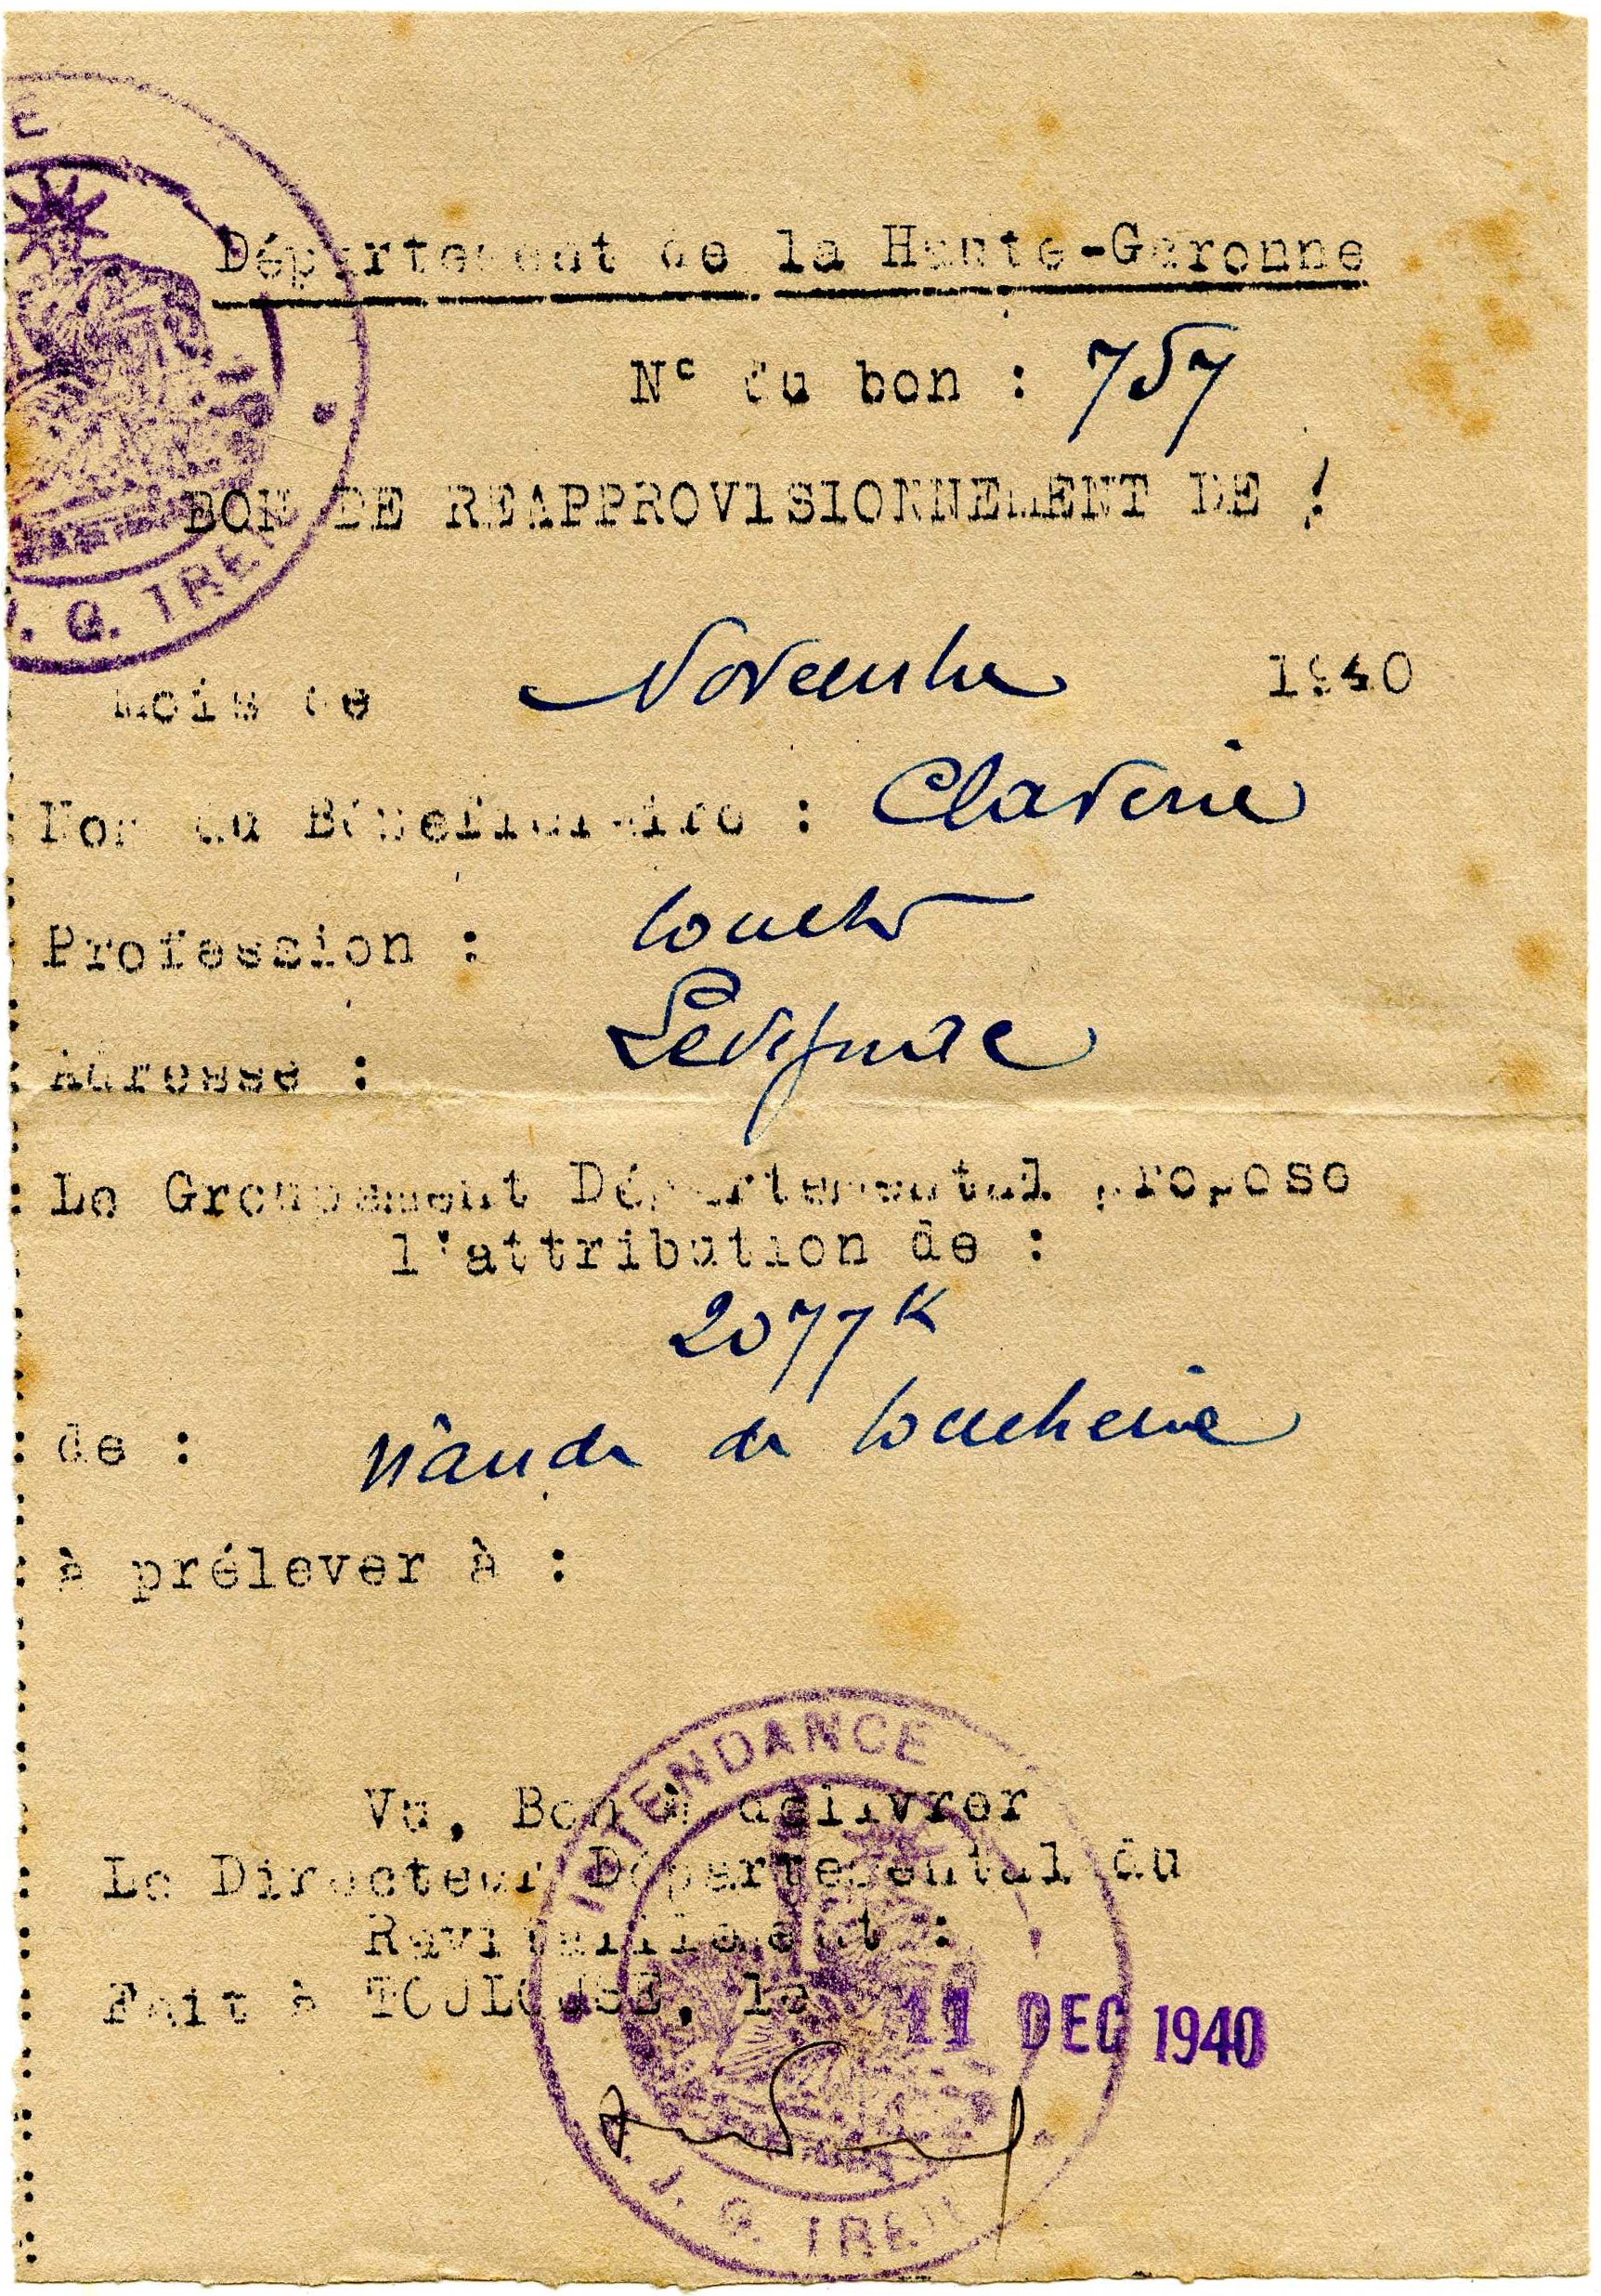 Département de la Haute-Garonne
N° du bon : 757
BON DE REAPPROVISIONNEMENT DE :
mois de Novembre 1940
Nom du Bénéficiaire : Claverie
Profession : boucher
Adresse : Levignac
Le Groupement Départemental propose
l'attribution de :
2077 K
de : viande de boucherie
à prélever à :
INTENDANCE
Vu, Bon à délivrer
Le Directeur Départemental du
Ravitaillement :
Fait à TOULOUSE, le 11 DEC 1940